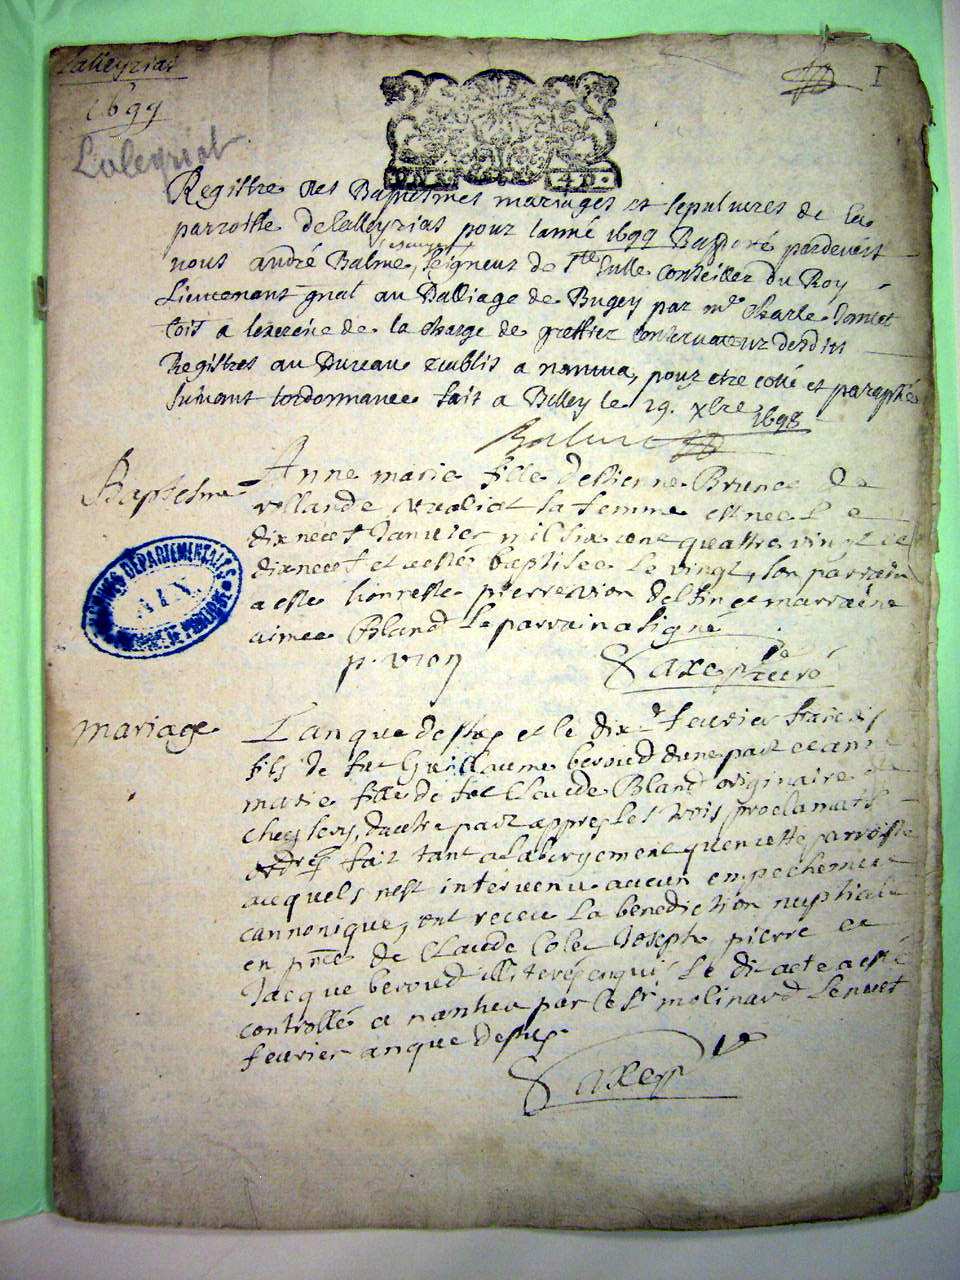 Lalleyrias
1699
Laleyriat
I
Registre des Baptesmes mariages et sepulures de la
parroisse de Lalleyrias pour lanné 1699 pardevant
nous andré Balme, escuyer seigneur de Ste Julle Conseiller du Roy
Lieutenant gnal au Balliage de Bugey par mr Charle
a lexercice de la charge de greffier conservateur desdits
Registres au Bureau establis a nantua, pour etre cotté et paraphé
suivant lordonnance fait a Belley le 29. xbre 1698
Balme
Baptesme
Anne marie fille de Pierre Brunet de
rollande la femme est née le
dixneuf Janvier mil six cent quattre vingt et
dixneuf et a esté baptisée le vingt, son parrain
a esté honneste pierre vion delfin et marraine
aimee Bland Le parrain a signé
p. vion
Saxe ptre curé
ARCHIVES DEPARTEMENTALES
AIN
mariage
L'an que dessus et le dix fevrier francois
fils de fut Guillaume beroud dune part et anne
marie fille de fut Claude Bland originaire de
dautre part appres les trois proclamats
fait tant a labergement quen cette parroisse
auquels nest intervenu aucun empechement
cannonique, ont receu la benediction nuptiale
en pnce de Claude Colet Joseph pierre et
Jacque beroud illiteré enquis Le dit acte a esté
controllé a nantua par le sr molinard le
fevrier an que dessus
Saxe ptre